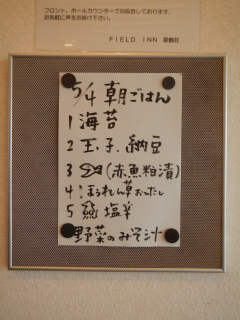 フロント、ホールカウンターで対応致しております。
お気軽に声をお掛け下さい。
FIELD INN
5/4 朝ごはん
1 海苔
2 玉子、納豆
3 (赤魚粕漬)
4 ほうれん草おひたし
5 塩辛
野菜のみそ汁